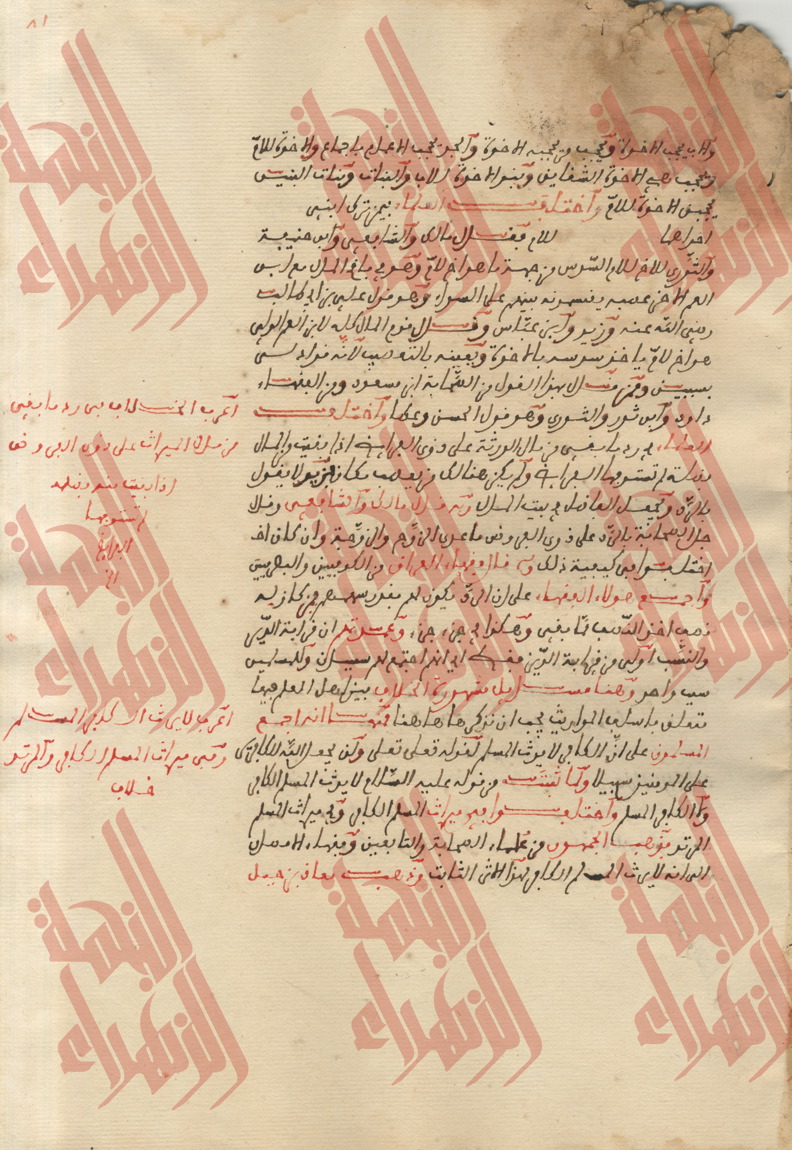 ٨١
والاب يحجب الاخوة ويحجب من يحجبه الاخوة والجد يحجب الاعمام باجماع والاخوة للام
ويحجب بنو الاخوة الشقايق وبنو الاخوة للاب والبنات وبنات البنين
يحجبن الاخوة للام واختلف العلماء فيمن ترك ابني عم
احدهما للام فقال مالك والشافعي وابو حنيفة
والثوري للاخ للام السدس من جهة ما هو اخ لام وهو في باقي المال مع ابن
العم الاخر عصبة يقتسمونه بينهم على السواء وهو قول علي بن ابي طالب
رضي الله عنه وزيد وابن عباس وقال قوم المال كله لابن العم الذي
هو اخ لام ياخذ سدسه بالاخوة وبقيته بالتعصيب لانه قد ادلى
بسببين وممن قال بهذا القول من الصحابة ابن مسعود ومن الفقهاء
داود وابو ثور والثوري وهو قول الحسن وعطا واختلف
العلماء في رد ما بقي من مال الورثة على ذوي الفرايض اذا بقيت من المال
فضلة لم تستوفها الفرايض ولم يكن هنالك من يعصب فكان زيد لا يقول
بالرد ويجعل الفاضل في بيت المال وبه قال مالك والشافعي وقال
جل الصحابة بالرد على ذوي الفروض ما عدى الزوج والزوجة وان كانوا
اختلفوا في كيفية ذلك وبه قال فقهاء العراق من الكوفيين والبصريين
واجمع هؤلاء الفقهاء على ان الرد يكون لهم بقدر سهامهم فمن كان له
نصف اخذ النصف مما بقي وهكذا في جزء جزء وعمدتهم ان قرابة الدين
والنسب اولى من قرابة الدين فقط اي ان هؤلاء اجتمع لهم سببان وللمسلمين
سبب واحد وهنا مسايل مشهورة الخلاف بين اهل العلم فيها
تتعلق باسباب المواريث يجب ان تذكر هاهنا فمنها انه اجمع
المسلمون على ان الكافر لا يرث المسلم لقوله تعالى ولن يجعل الله للكافرين
على المومنين سبيلا ولما ثبت من قوله عليه السلام لا يرث المسلم الكافر
ولا الكافر المسلم واختلفوا في ميراث المسلم الكافر وفي ميراث المسلم
المرتد فذهب الجمهور من علماء الصحابة والتابعين وفقهاء الامصار
الى انه لا يرث المسلم الكافر بهذا الاثر الثابت وذهب معاذ بن جبل
اعرف الخلاف في رد ما بقي
من مال الميراث على ذوي الفروض
اذا بقيت منه فضلة
لم تستوفها
الفرايض
الخ
اعرف لا يرث الكافر المسلم
وفي ميراث المسلم الكافر والمرتد
خلاف